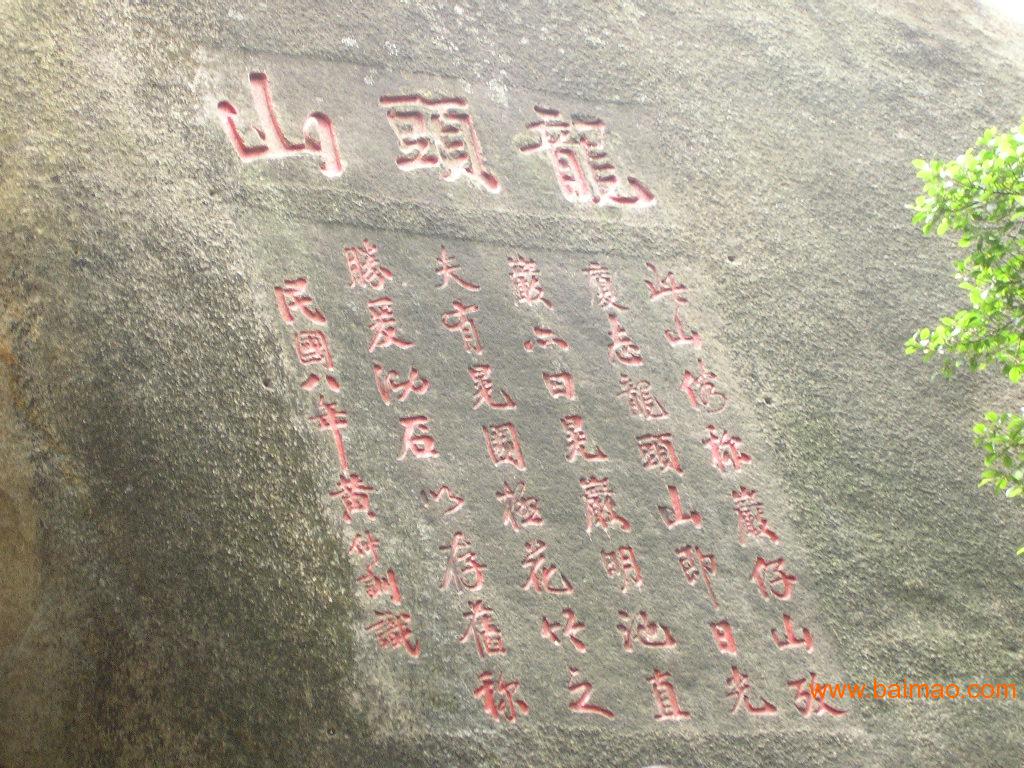 龍頭山
此山俗称巖仔山攷
廈志龍頭山即日光
巖亦曰晃巖明池直
夫有晃園極花竹之
勝爰泐石以存舊称
民國八年黄仲訓識
www.baimao.com